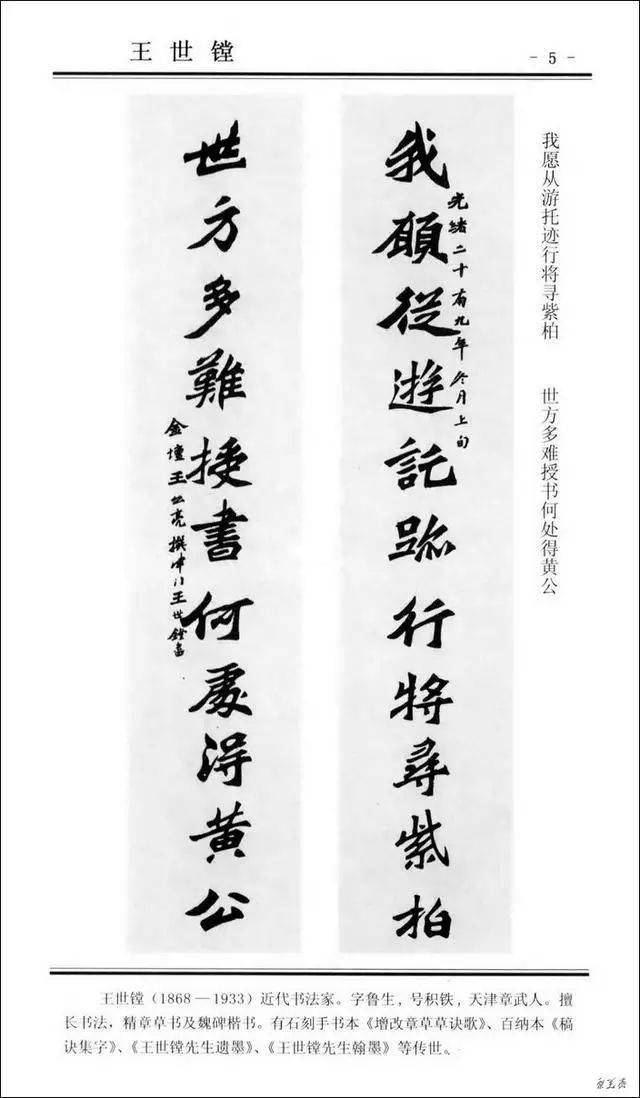 王世镗
- 5 -
我愿从游托迹行将寻紫柏
世方多难授书何处得黄公
我願從遊託跡行將尋紫柏
光緒二十有九年冬月上旬
世方多難授書何處得黃公
金壇王 亮撰 王世鏜書
王世镗（1868—1933）近代书法家。字鲁生，号积铁，天津章武人。擅
长书法，精章草书及魏碑楷书。有石刻手书本《增改章草草诀歌》、百纳本《稿
诀集字》、《王世镗先生遗墨》、《王世镗先生翰墨》等传世。